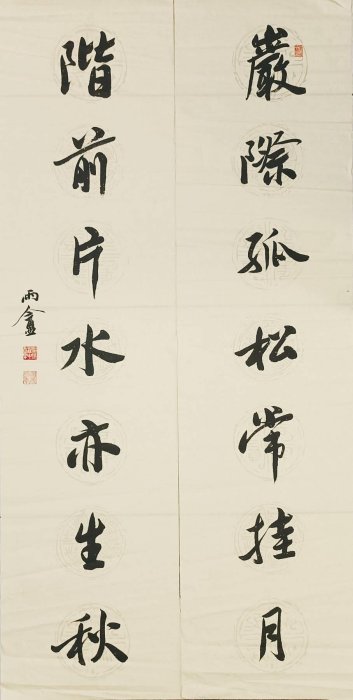 巖際孤松常挂月
階前片水亦生秋
雨盦